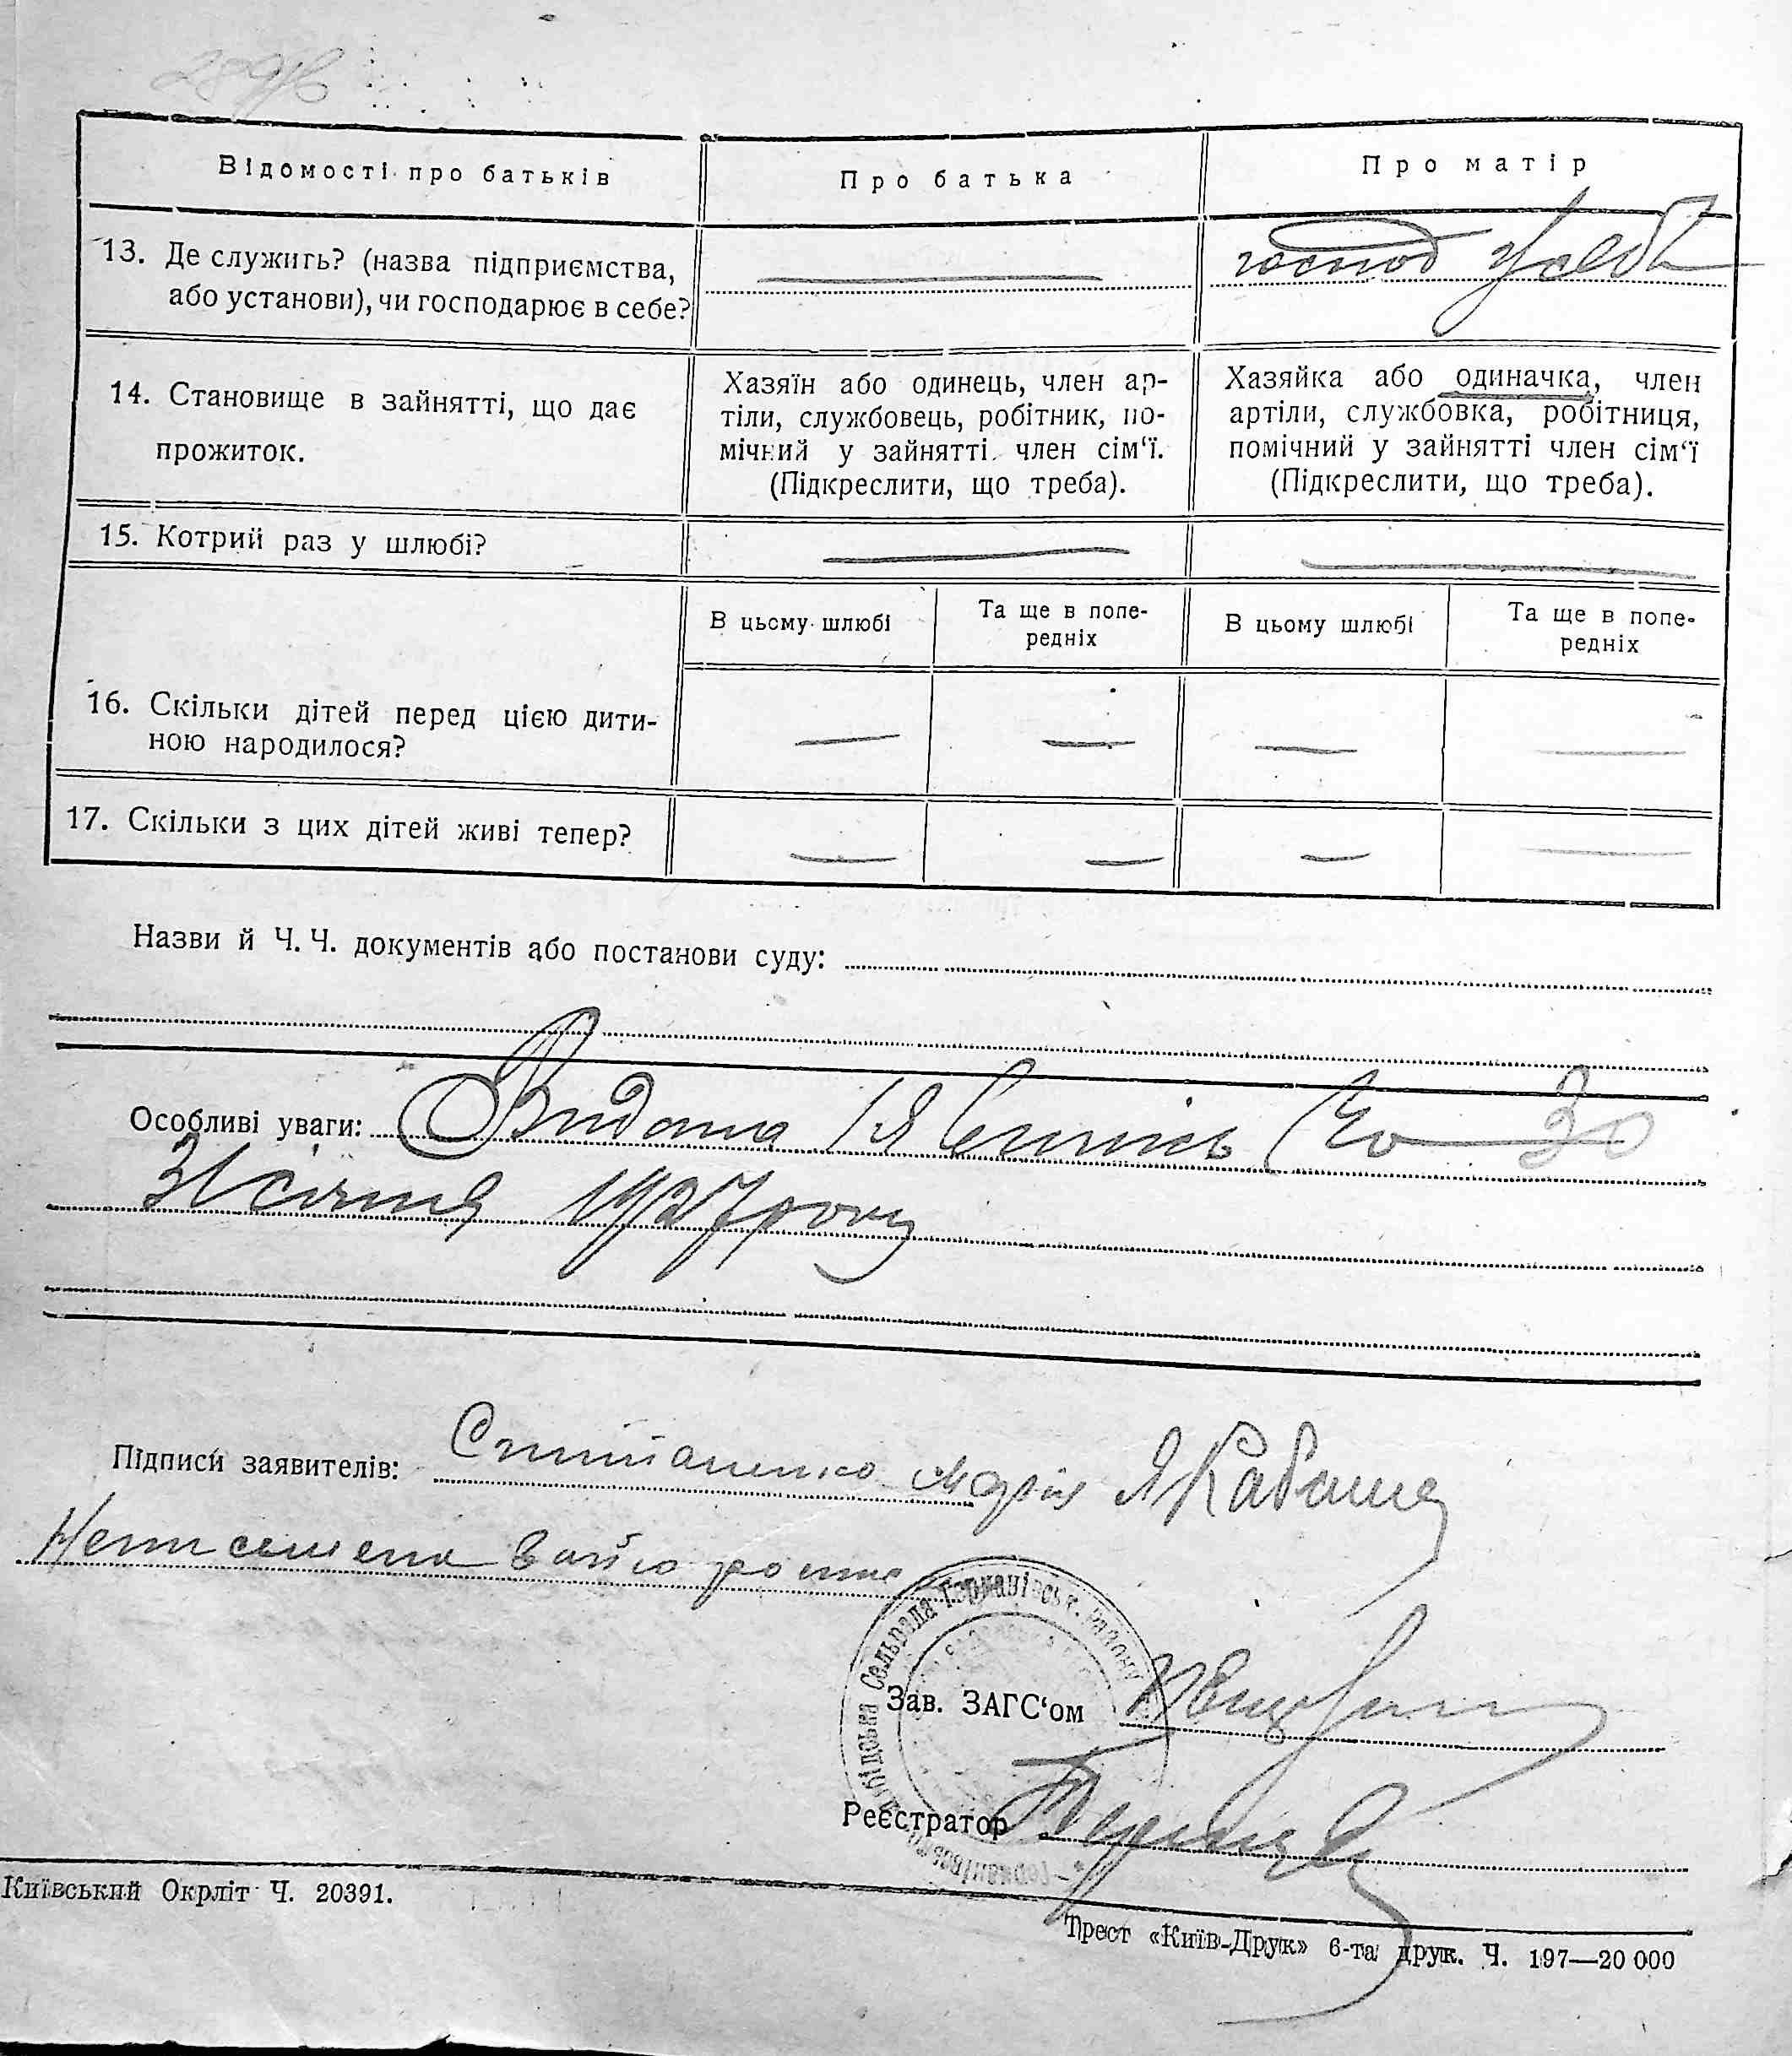 Відомості про батьків
Про батька
Про матір
13. Де служить? (назва підприємства, або установи), чи господарює в себе?
господ у себе
14. Становище в зайнятті, що дає прожиток.
Хазяїн або одинець, член ар-
тіли, службовець, робітник, по-
мічний у зайнятті член сім‘ї.
(Підкреслити, що треба).
Хазяйка або одиначка, член
артіли, службовка, робітниця,
помічний у зайнятті член сім‘ї
(Підкреслити, що треба).
15. Котрий раз у шлюбі?
В цьому шлюбі
Та ще в попе-
редніх
В цьому шлюбі
Та ще в попе-
редніх
16. Скільки дітей перед цією дити-
ною народилося?
17. Скільки з цих дітей живі тепер?
Назви й Ч. Ч. документів або постанови суду:
Особливі уваги: Видана 30
31 січня 1927 року
Підписи заявителів: Марія
Неписьмена
Сельрада Германівськ. району
Зав. ЗАГС‘ом
Реєстратор
Київський Окрліт Ч. 20391.
Трест «Київ-Друк» 6-та друк. Ч. 197—20 000